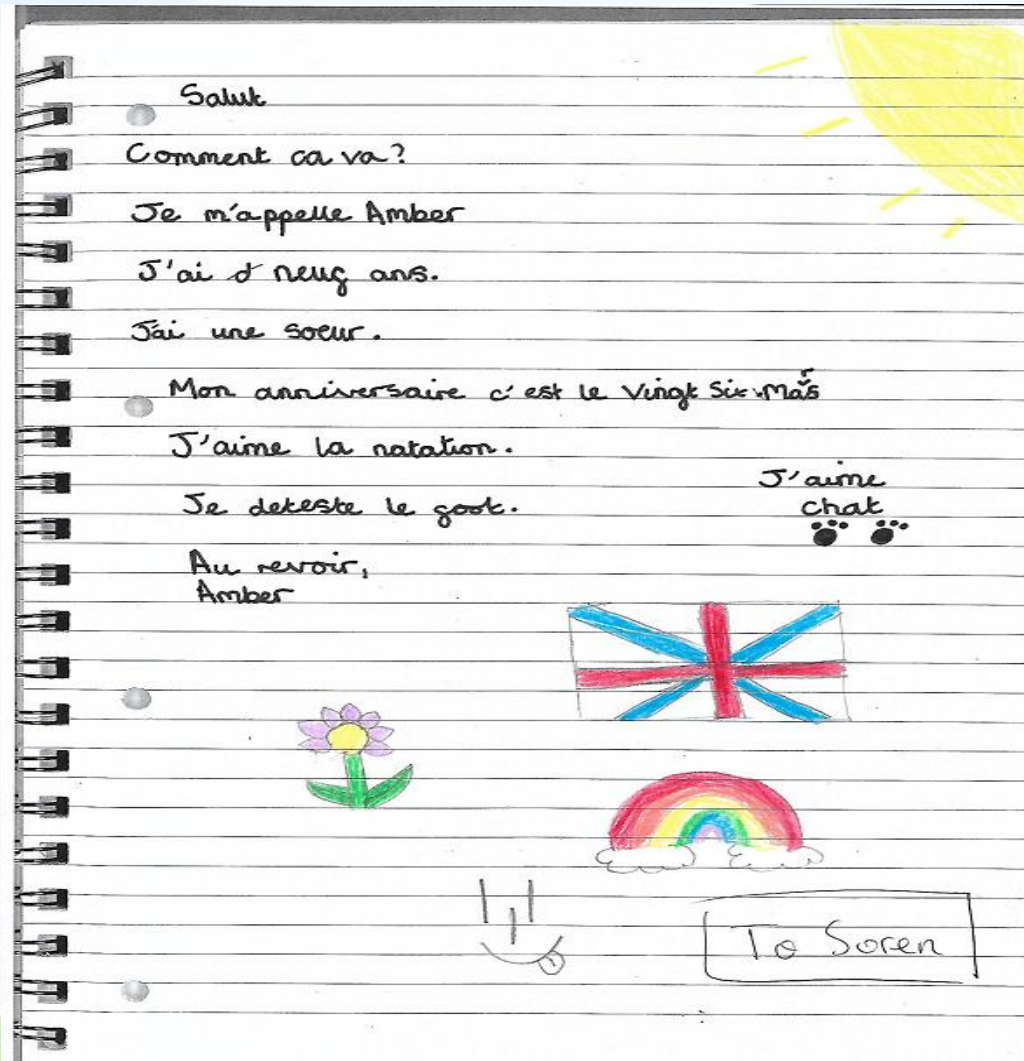 Salut
Comment ca va?
Je m'appelle Amber
J'ai neuf ans.
J'ai une soeur.
Mon anniversaire c'est le vingt six mars
J'aime la natation.
J'aime
chat
Je deteste le foot.
Au revoir,
Amber
To Soren